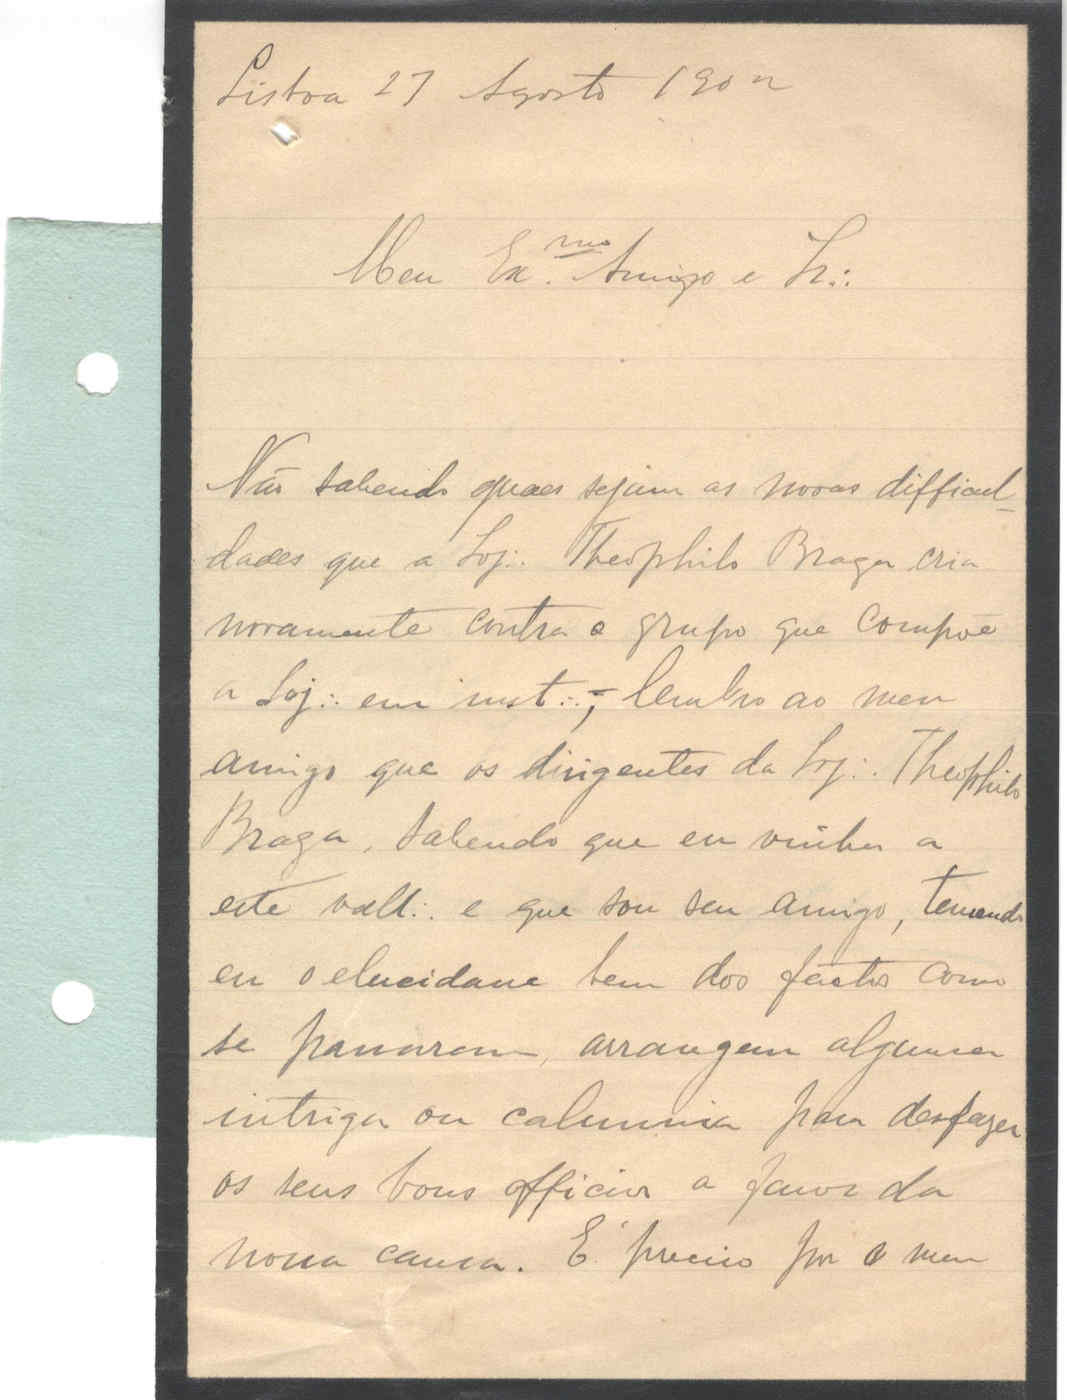 Lisboa 27 Agosto 190
Meu Ex.mo Amigo e Ir∴
Não sabendo quaes sejam as novas difficul-
dades que a Loj∴ Theophilo Braga cria
novamente contra o grupo que compõe
a Loj∴ em inst∴; lembro ao meu
amigo que os dirigentes da Loj∴ Theophilo
Braga, sabendo que eu vinha a
este vall∴ e que sou seu amigo, temendo
eu o elucidasse bem dos factos como
se passaram, arrangem alguma
intriga ou calumnia para desfazer
os seus bons officios a favor da
nossa causa. É preciso por o meu